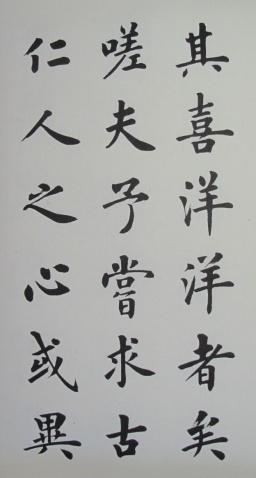 其喜洋洋者矣
嗟夫予嘗求古
仁人之心或異